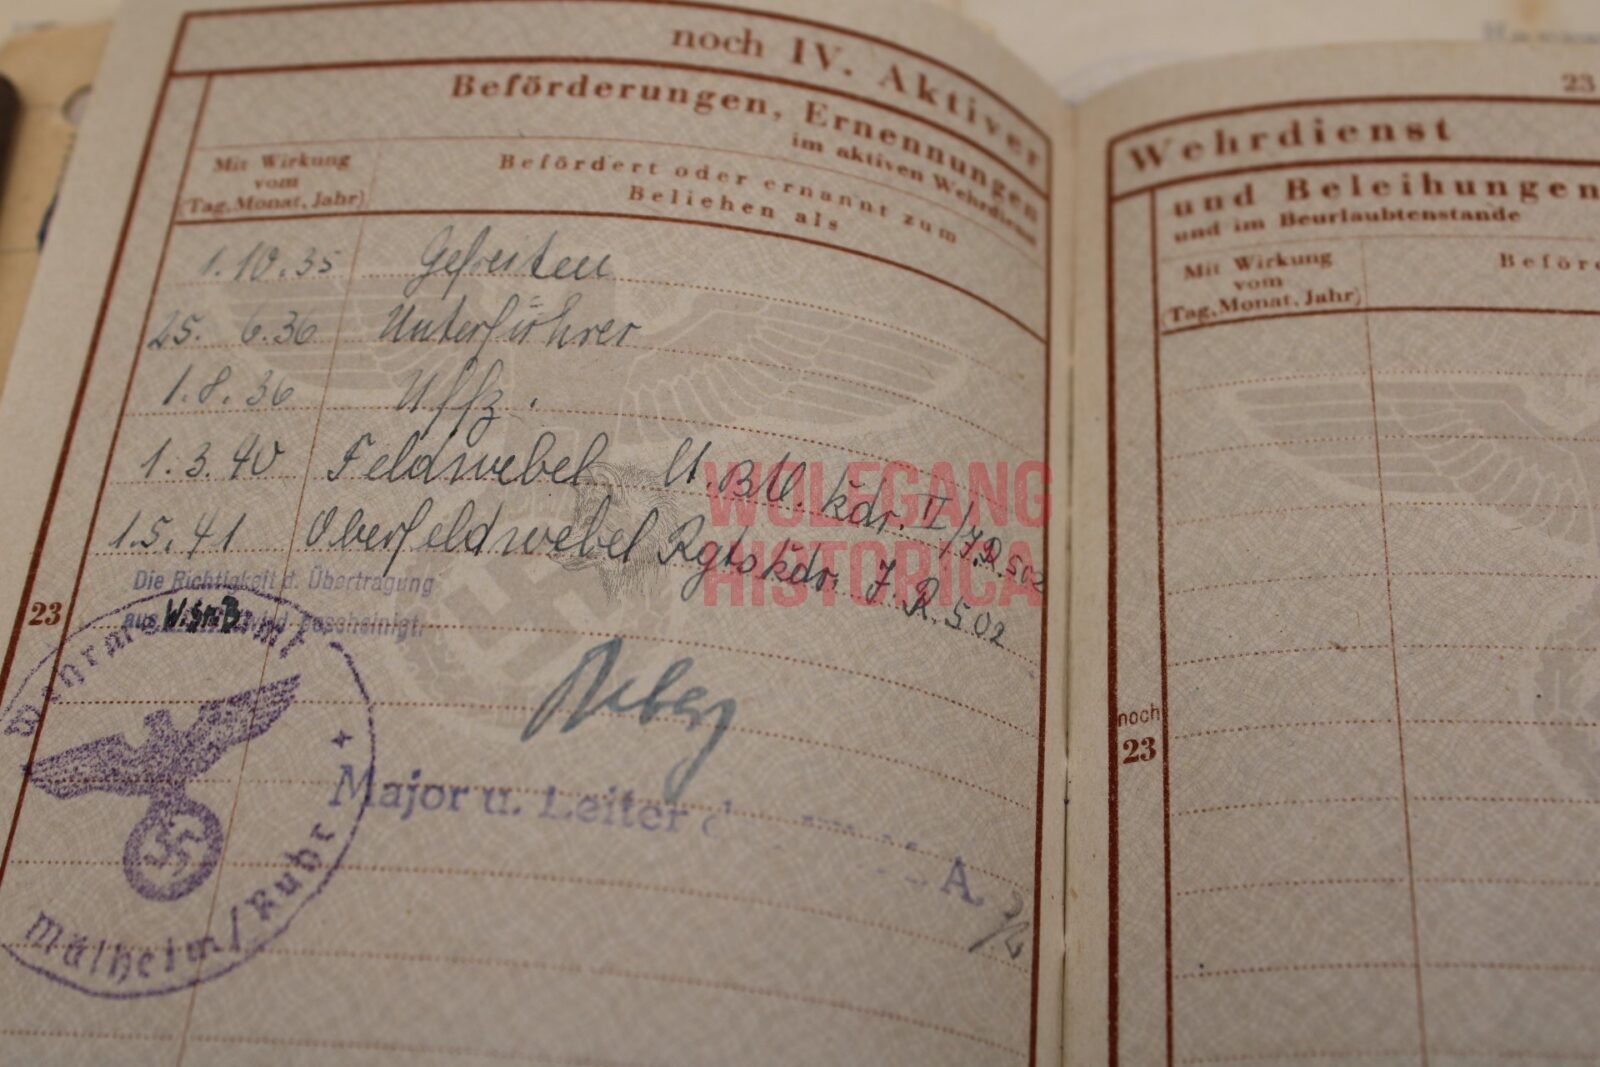 noch IV. Aktiver
Beförderungen, Ernennungen
im aktiven Wehrdienst
Mit Wirkung
vom
(Tag, Monat, Jahr)
Befördert oder ernannt zum
Beliehen als
1.10.35 Gefreiten
25. 6.36 Unterführer
1.8.36 Uffz.
1.3.40 Feldwebel U. Btl. kdr. II/J.R. 502
1.5.41 Oberfeldwebel Rgtskdr. J.R. 502
Die Richtigkeit d. Übertragung
aus W.St.B. wird bescheinigt.
23
Major u. Leiter d
A.
Mülheim/Ruhr
WOLFGANG
HISTORICA
23
Wehrdienst
und Beleihungen
und im Beurlaubtenstande
Mit Wirkung
vom
(Tag, Monat, Jahr)
Beförd
noch
23